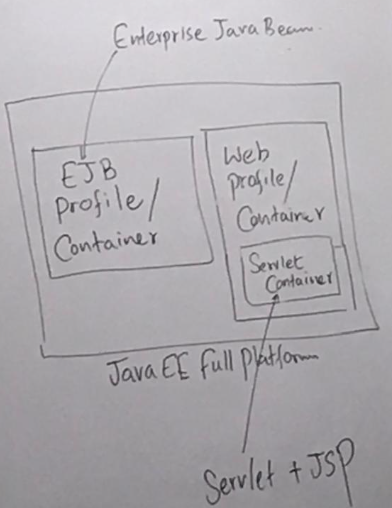 Enterprise Java Bean.
EJB
Profile/
Container
Web
profile/
Container
Servlet
Container
Java EE Full Platform
Servlet + JSP